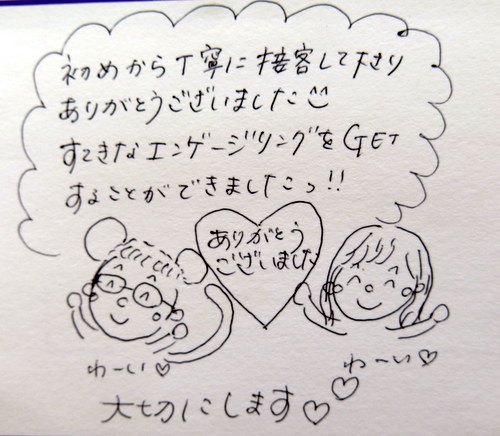 初めから丁寧に接客して下さり
ありがとうございました
すてきなエンゲージリングをGET
することができましたっ!!
ありがとう
ございました
わーい♡
わーい♡
大切にします♡♡